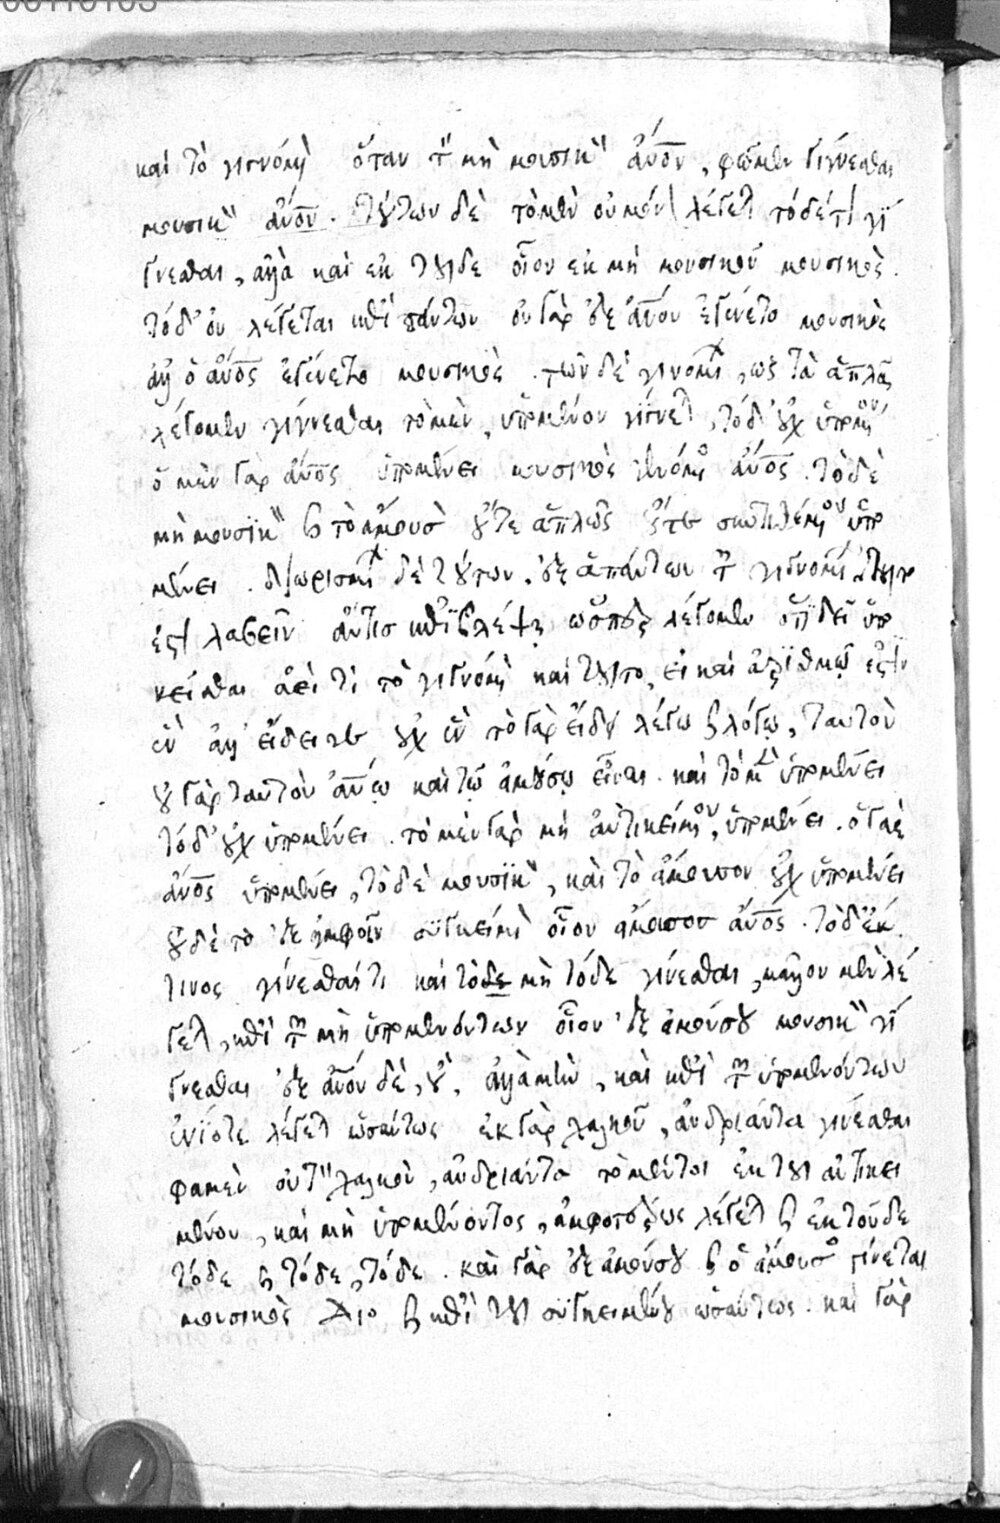 καὶ τὸ γιγνόμ ὅταν τ μὴ μουσικ ἄνον, φῶμεν γίγνεσθαι
μουσικ ἄνον. τούτων δὲ τὸ μὲν οὐ μόν λέγετ τόδε τι γί
γνεσθαι, ἀλλὰ καὶ ἐκ τοῦδε οἷον ἐκ μὴ μουσικοῦ μουσικὸς.
τὸ δ' οὐ λέγεται ἐπὶ πάντων οὐ γὰρ ἐξ ἄνου ἐγένετο μουσικὸς
ἀλλ ὁ ἄνος ἐγένετο μουσικὸς. τῶν δὲ γινομ, ὡς τὰ ἁπλᾶ
λέγομεν γίγνεσθαι τὸ μὲν, ὑπομένον γίγνετ, τὸ δ' οὐχ ὑπομ
ὁ μὲν γὰρ ἄνος ὑπομένει μουσικὸς γενόμ ἄνος. τὸ δὲ
μὴ μουσικ κ τὸ ἄμουσ οὔτε ἁπλῶς οὔτε συντιθέμ ὑπο
μένει. διωρισμ δὲ τούτων, ἐξ ἁπάντων τ γιγνομ τοῦτο
ἔστ λαβεῖν ἄν τις ἐπιβλέψῃ ὥσπερ λέγομεν ὅτι δεῖ ὑπο
κεῖσθαι ἀεί τι τὸ γιγνόμ καὶ τοῦτο, εἰ καὶ ἀριθμῷ ἐστιν
ἓν ἀλλ εἴδει γε οὐχ ἓν τὸ γὰρ εἴδει λέγω κ λόγῳ, ταυτὸν
οὐ γὰρ ταυτὸν ἄνῳ καὶ τῷ ἀμούσῳ εἶναι. καὶ τὸ μ ὑπομένει
τὸ δ' οὐχ ὑπομένει. τὸ μὲν γὰρ μὴ ἀντικείμ, ὑπομένει. ὁ γὰρ
ἄνος ὑπομένει, τὸ δὲ μουσικ, καὶ τὸ ἄμουσον οὐχ ὑπομένει
οὐδὲ τὸ ἐξ ἀμφοῖν συγκείμ οἷον ἄμουσος ἄνος. τὸ δ' ἔκ
τινος γίνεσθαί τι καὶ τόδε μὴ τόδε γίνεσθαι, μᾶλλον μὲν λέ
γετ, ἐπὶ τ μὴ ὑπομενόντων οἷον ἐξ ἀμούσου μουσικ γί
γνεσθαι ἐξ ἄνου δὲ, οὔ, ἀλλὰ μὴν, καὶ ἐπὶ τ ὑπομενόντων
ἐνίοτε λέγετ ὡσαύτως ἐκ γὰρ χαλκοῦ, ἀνδριάντα γίνεσθαι
φαμὲν οὐ τ χαλκὸν, ἀνδριάντα τὸ μέντοι ἐκ τοῦ ἀντικει
μένου, καὶ μὴ ὑπομένοντος, ἀμφοτέρως λέγετ κ ἐκ τοῦδε
τόδε κ τόδε, τόδε. καὶ γὰρ ἐξ ἀμούσου κ ὁ ἄμουσ γίνεται
μουσικὸς διὸ κ ἐπὶ τοῦ συγκειμένου ὡσαύτως. καὶ γὰρ